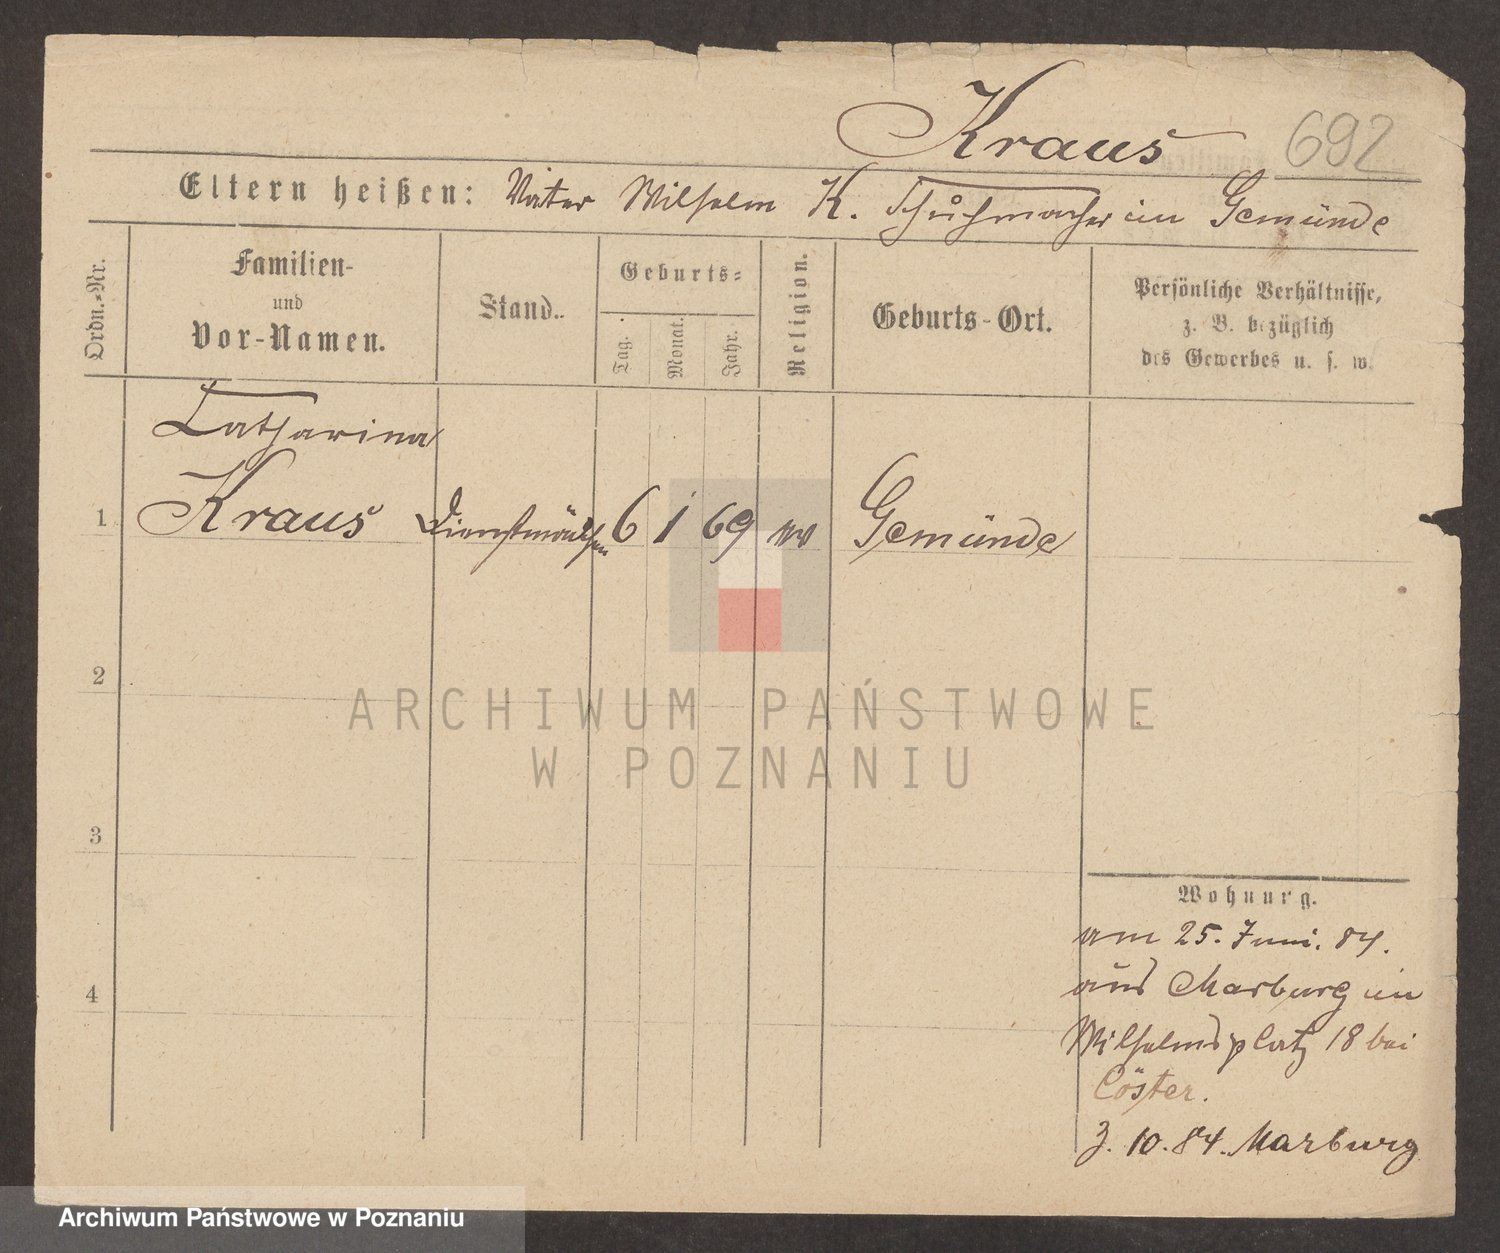 Kraus 692
Eltern heißen: Vater Wilhelm K. Schuhmacher in Gemünde
Ordn.-Nr.
Familien-
und
Vor-Namen.
Stand.
Geburts-
Tag.
Monat.
Jahr.
Religion.
Geburts-Ort.
Persönliche Verhältnisse,
z. B. bezüglich
des Gewerbes u. s. w.
Catharina
1 Kraus Dienstmädchen 6 1 69 ev Gemünde
2
3
4
Wohnung.
am 25. Juni. 84.
aus Marburg in
Wilhelmsplatz 18 bei
Cöster.
3. 10. 84. Marburg
ARCHIWUM PAŃSTWOWE
W POZNANIU
Archiwum Państwowe w Poznaniu